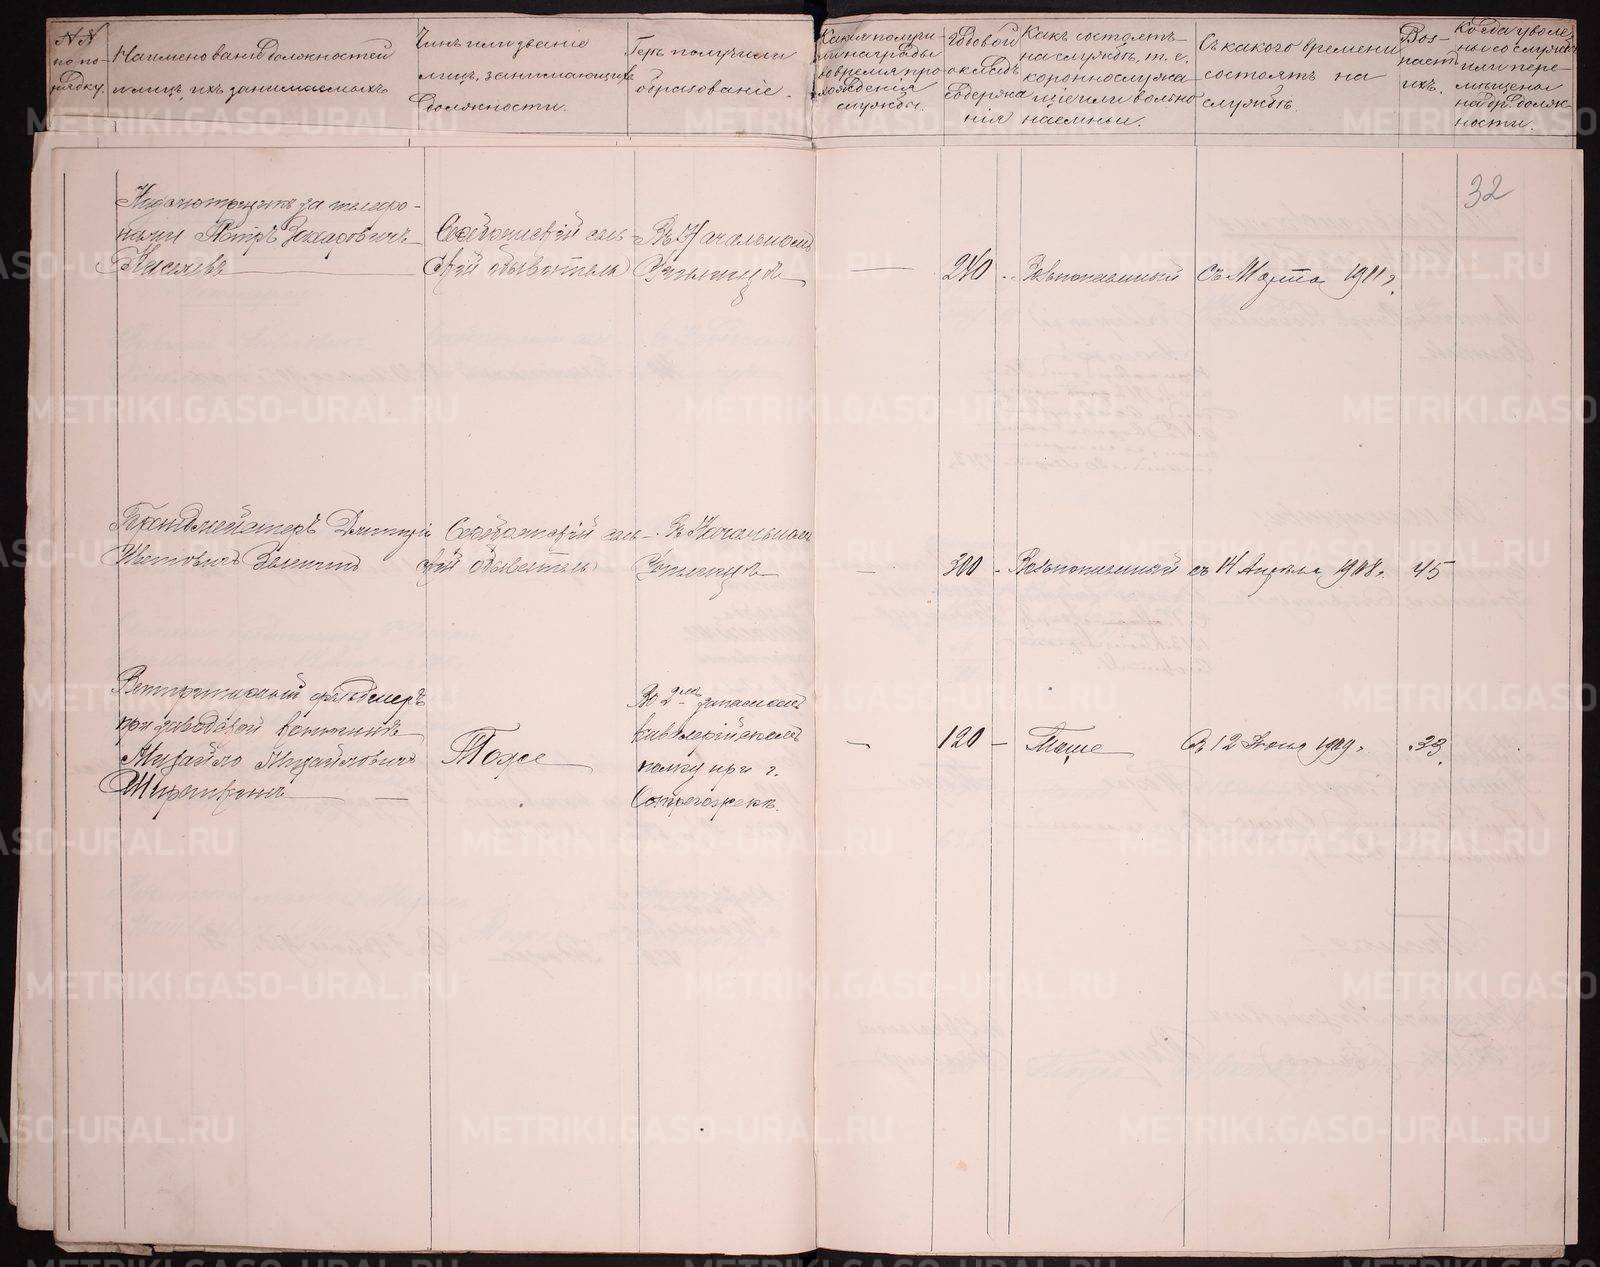 №№ по по-
рядку.
Наименованіе должностей
и лицъ, ихъ занимаемыхъ
Чинъ или званіе
лицъ, занимающихъ
должности.
Гдѣ получили
образованіе.
Какія получи-
ли награды
во время про-
хожденія
службы.
Годовой
окладъ
содержа
нія
Какъ состоятъ
на службѣ, т. е.
короннослужа-
щіе или вольно
наемные.
Съ какого времени
состоятъ на
службѣ.
Воз-
растъ
ихъ.
Когда уволе-
ны со службы
или пере-
мѣщены
на др. долж-
ности.
32
за телефо-
нами Петръ Захаровичъ
Киселевъ
сель-
скій обыватель
Въ Начальномъ
Училищѣ
—
240 -
Вольнонаемный
Съ Марта 1911 г.
Брандмейстеръ Дмитрій
Ивановичъ
сель-
скій обыватель
Въ Начальномъ
Училищѣ
—
300 -
Вольнонаемный
съ 14 Апрѣля 1908 г.
45
Ветеринарный фельдшеръ
при заводской конюшнѣ
Михайло Михайловичъ
Тоже
Во 2мъ запасномъ
кавалерійскомъ
полку при г.
Острогожскѣ.
—
120 -
Тоже
Съ 12 Іюня 1909 г.
33.
METRIKI.GASO-URAL.RU